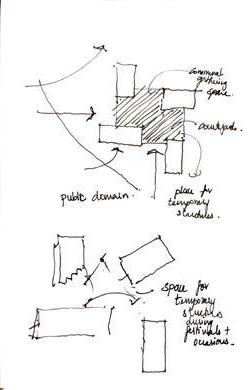 communal
gathering
space.
courtyard.
public domain.
place for
temporary
structures.
space for
temporary
structures
during
festivals +
occasions.